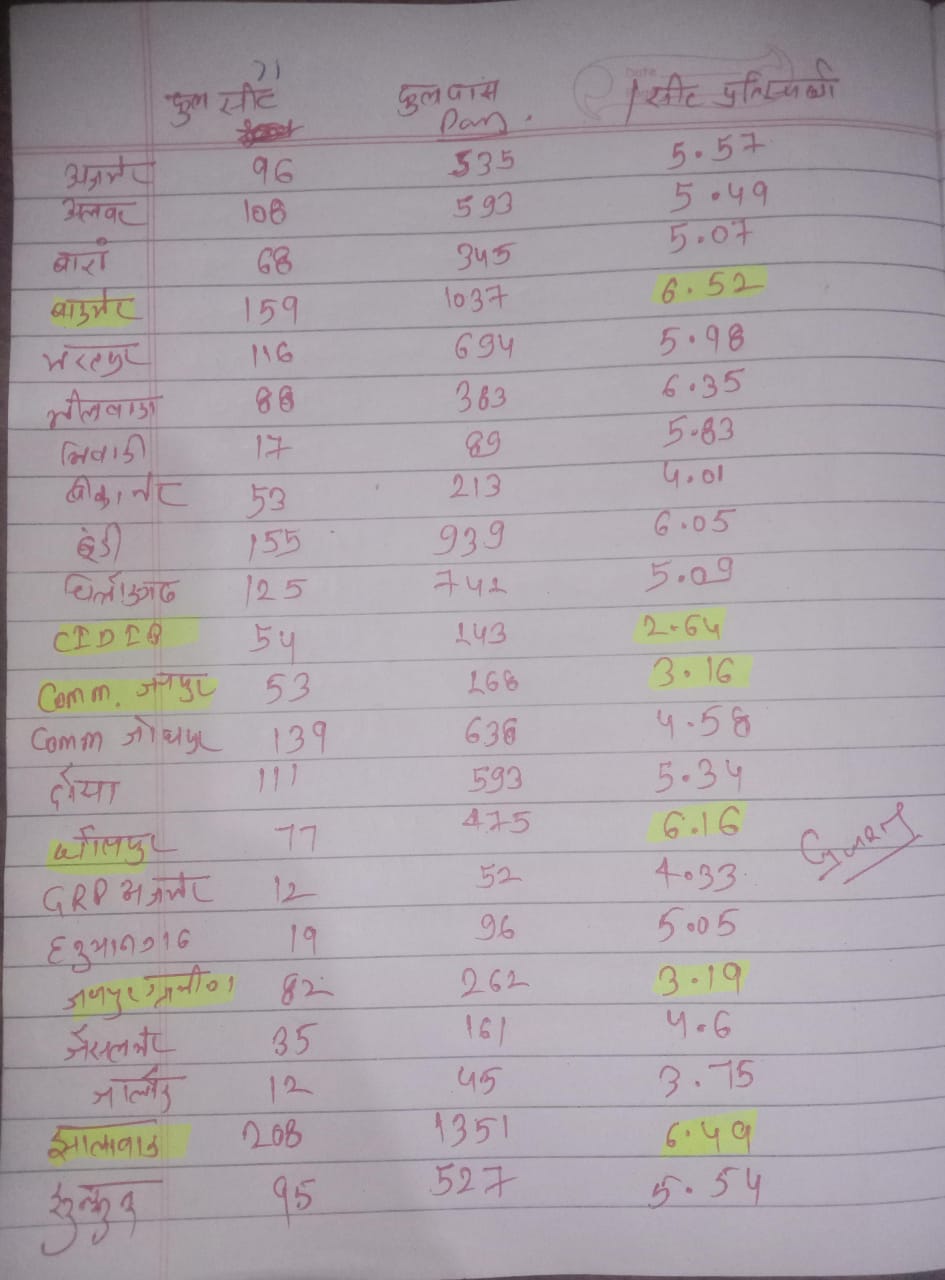 71
कुल सीट कुल पास /सीट प्रतिस्पर्धा
Pass.
अजमेर 96 535 5.57
अलवर 108 593 5.49
बारां 68 345 5.07
बाडमेर 159 1037 6.52
भरतपुर 116 694 5.98
भीलवाडा 88 383 6.35
भिवाडी 17 89 5.83
बीकानेर 53 213 4.01
बूंदी 155 939 6.05
चित्तौडगढ 125 742 5.09
CIDIB 54 143 2.64
Comm. जयपुर 53 168 3.16
Comm जोधपुर 139 636 4.58
दौसा 111 593 5.34
धौलपुर 77 475 6.16
GRP अजमेर 12 52 4.33
हनुमानगढ 19 96 5.05
जयपुर ग्रामीण 82 262 3.19
जैसलमेर 35 161 4.6
जालौर 12 45 3.75
झालावाड 208 1351 6.49
झुन्झुनू 95 527 5.54